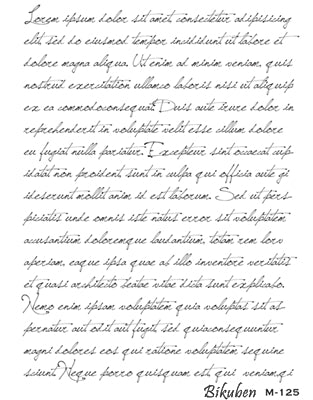 Lorem ipsum dolor sit amet consectetur adipisicing
elit, sed do eiusmod tempor incididunt ut labore et
dolore magna aliqua. Ut enim ad minim veniam, quis
nostrud exercitation ullamco laboris nisi ut aliquip
ex ea commodo consequat. Duis aute irure dolor in
reprehenderit in voluptate velit esse cillum dolore
eu fugiat nulla pariatur. Excepteur sint occaecat cup-
idatat non proident sunt in culpa qui officia aute gi
id eserunt mollit anim id est laborum. Sed ut pers-
piciatis unde omnis iste natus error sit voluptatem
accusantium doloremque laudantium, totam rem lorv
aperiam, eaque ipsa quae ab illo inventore veritatis
et quasi architecto beatae vitae dicta sunt explicabo.
Nemo enim ipsam voluptatem quia voluptas sit as-
pernatur aut odit aut fugit, sed quia consequuntur
magni dolores eos qui ratione voluptatem sequine
sciunt. Neque porro quisquam est, qui veniam, qi
Bikuben M-125